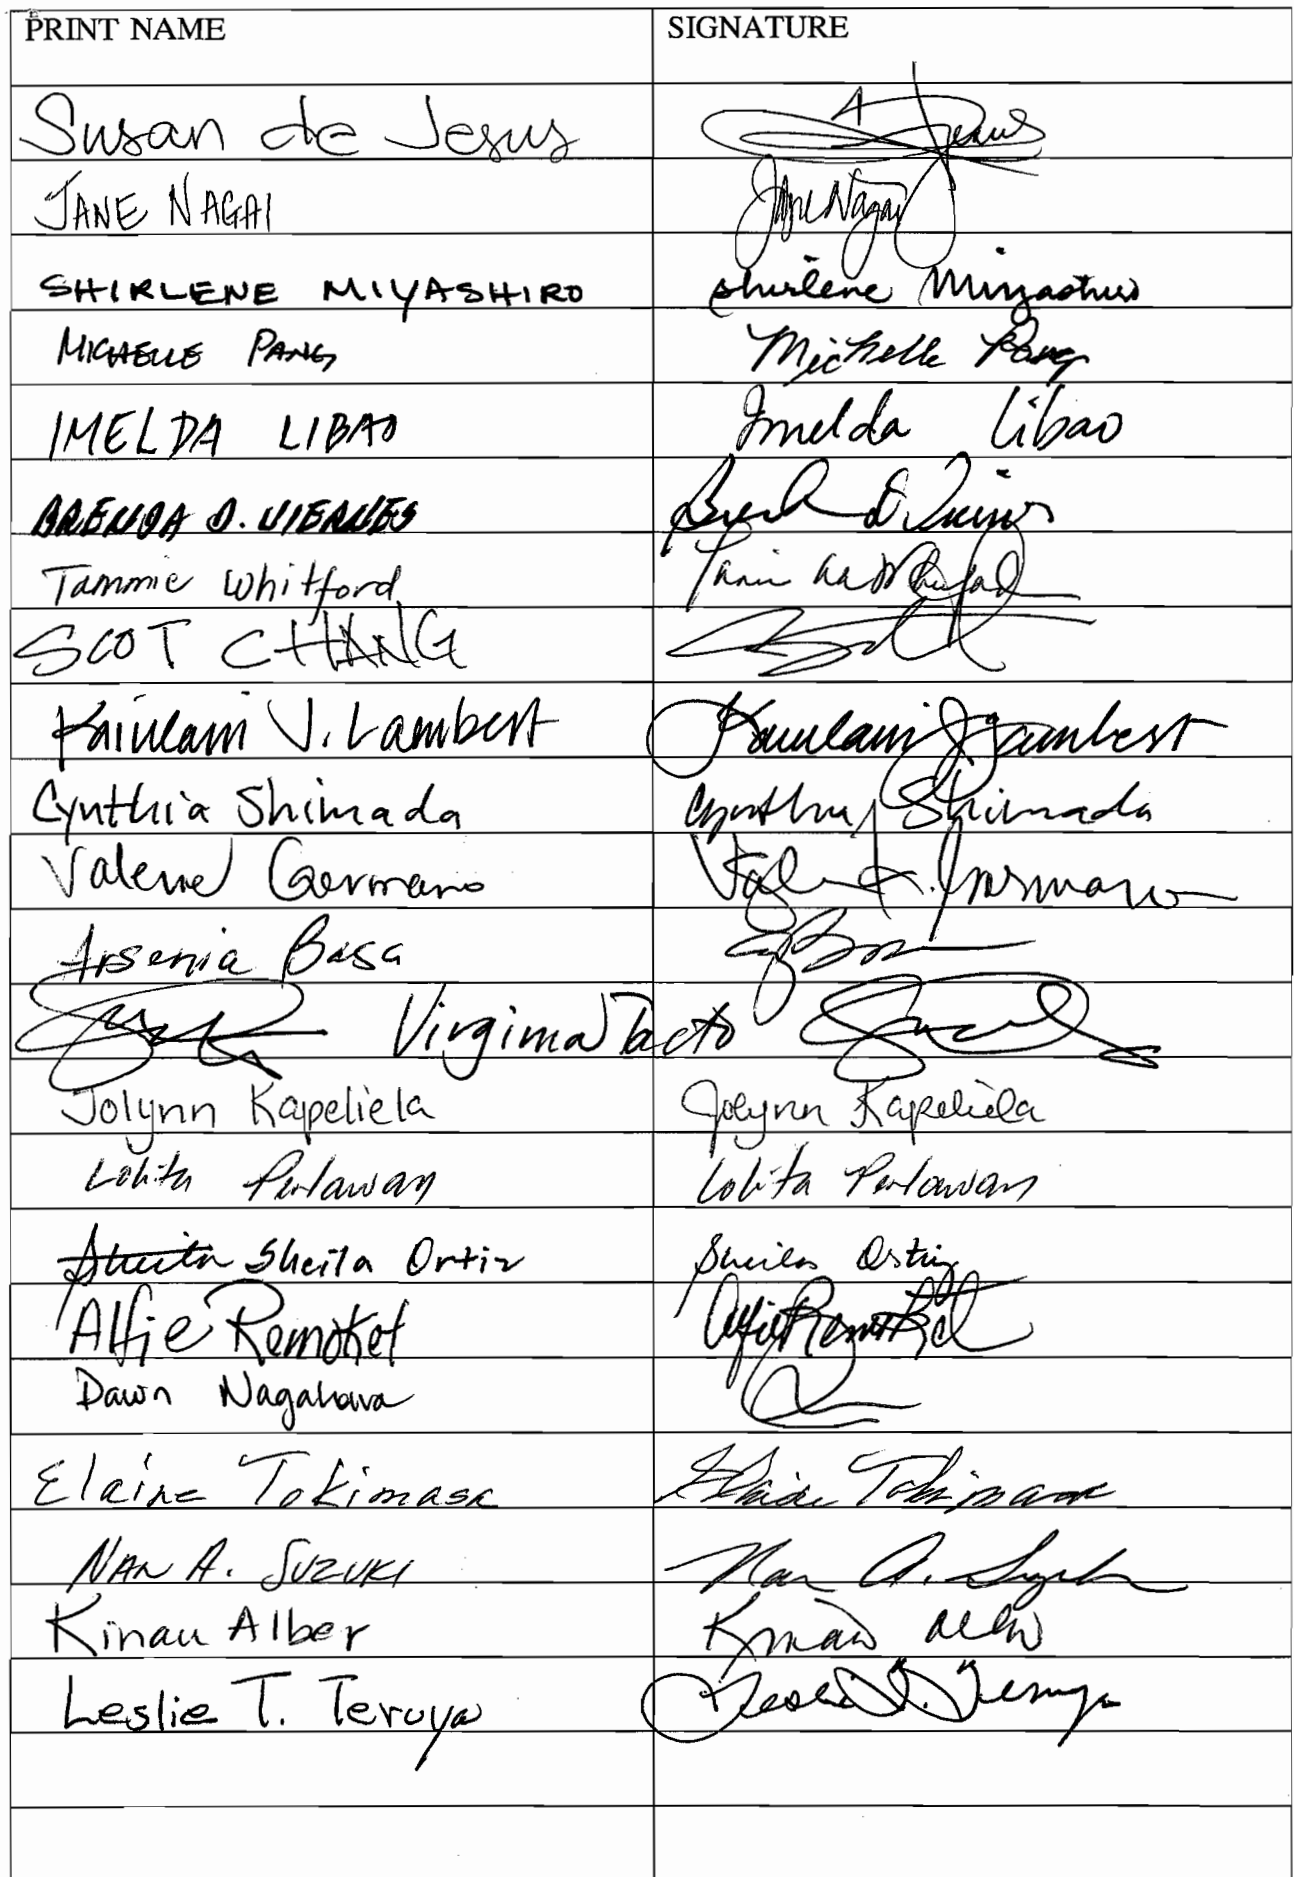 PRINT NAME SIGNATURE
Susan de Jesus Jesus
JANE NAGAI Jane Nagai
SHIRLENE MIYASHIRO Shirlene Miyashiro
MICHELLE PANG Michelle Pang
IMELDA LIBAO Imelda Libao
BRENDA D. VIERNES
Tammie Whitford
SCOT CHANG
Kaiulani J. Lambert Kaiulani J Lambert
Cynthia Shimada Cynthia Shimada
Valerie Germano
Arsenia Basa
Virginia Tacto
Jolynn Kapeliela Jolynn Kapeliela
Lolita Perlawan Lolita Perlawan
Sheila Sheila Ortiz Sheila Ortiz
Alfie Remoket Alfie Remoket
Dawn Nagahara
Elaine Tokimasa Elaine Tokimasa
NAN A. SUZUKI Nan A. Suzuki
Kinau Alber Kinau Alber
Leslie T. Teruya Leslie T. Teruya